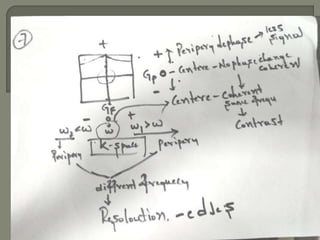 7
+
+ ↑ Peripery dephase → less signal
Gp 0 - Centere - No phase change coherent
-
Gp
Centere - Coherent
same frequ
Contrast
- 0 +
ω₂<ω ω ω₁>ω
K-space
Peripery Peripery
different frequency
Resoloution - edges